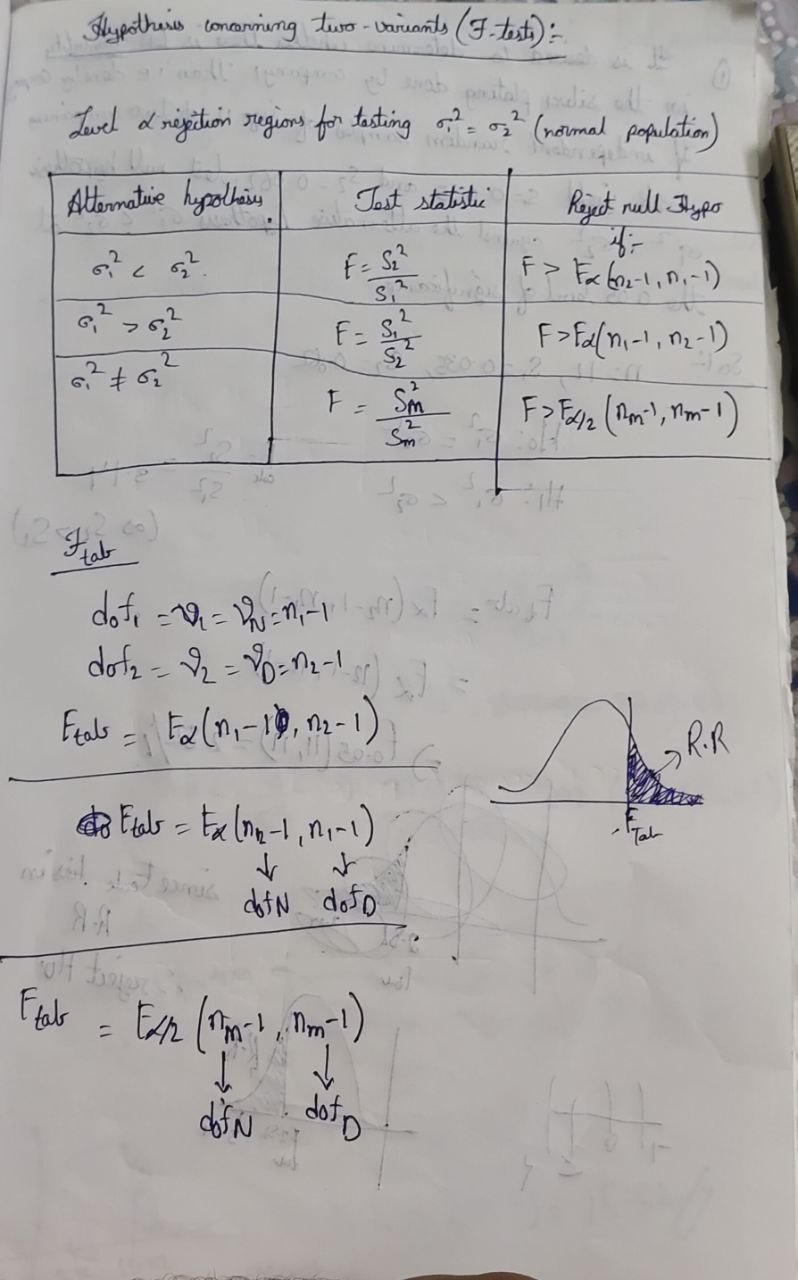 Hypothesis concerning two-variants (F-tests):-
Level α rejection regions for testing σ₁² = σ₂² (normal population)
Alternative hypothesis. Test statistic Reject null Hypo if:-
σ₁² < σ₂². F = S₂²/S₁² F > Fα(n₂-1, n₁-1)
σ₁² > σ₂² F = S₁²/S₂² F > Fα(n₁-1, n₂-1)
σ₁² ≠ σ₂² F = S_M²/S_m² F > Fα/2 (n_M-1, n_m-1)
F_tab
dof₁ = ν₁ = ν_N = n₁-1
dof₂ = ν₂ = ν_D = n₂-1
F_tab = Fα(n₁-1, n₂-1)
R.R
F_Tab
F_tab = Fα(n₂-1, n₁-1)
↓ ↓
dofN dof_D
F_tab = Fα/2 (n_M-1, n_m-1)
↓ ↓
dof_N dof_D